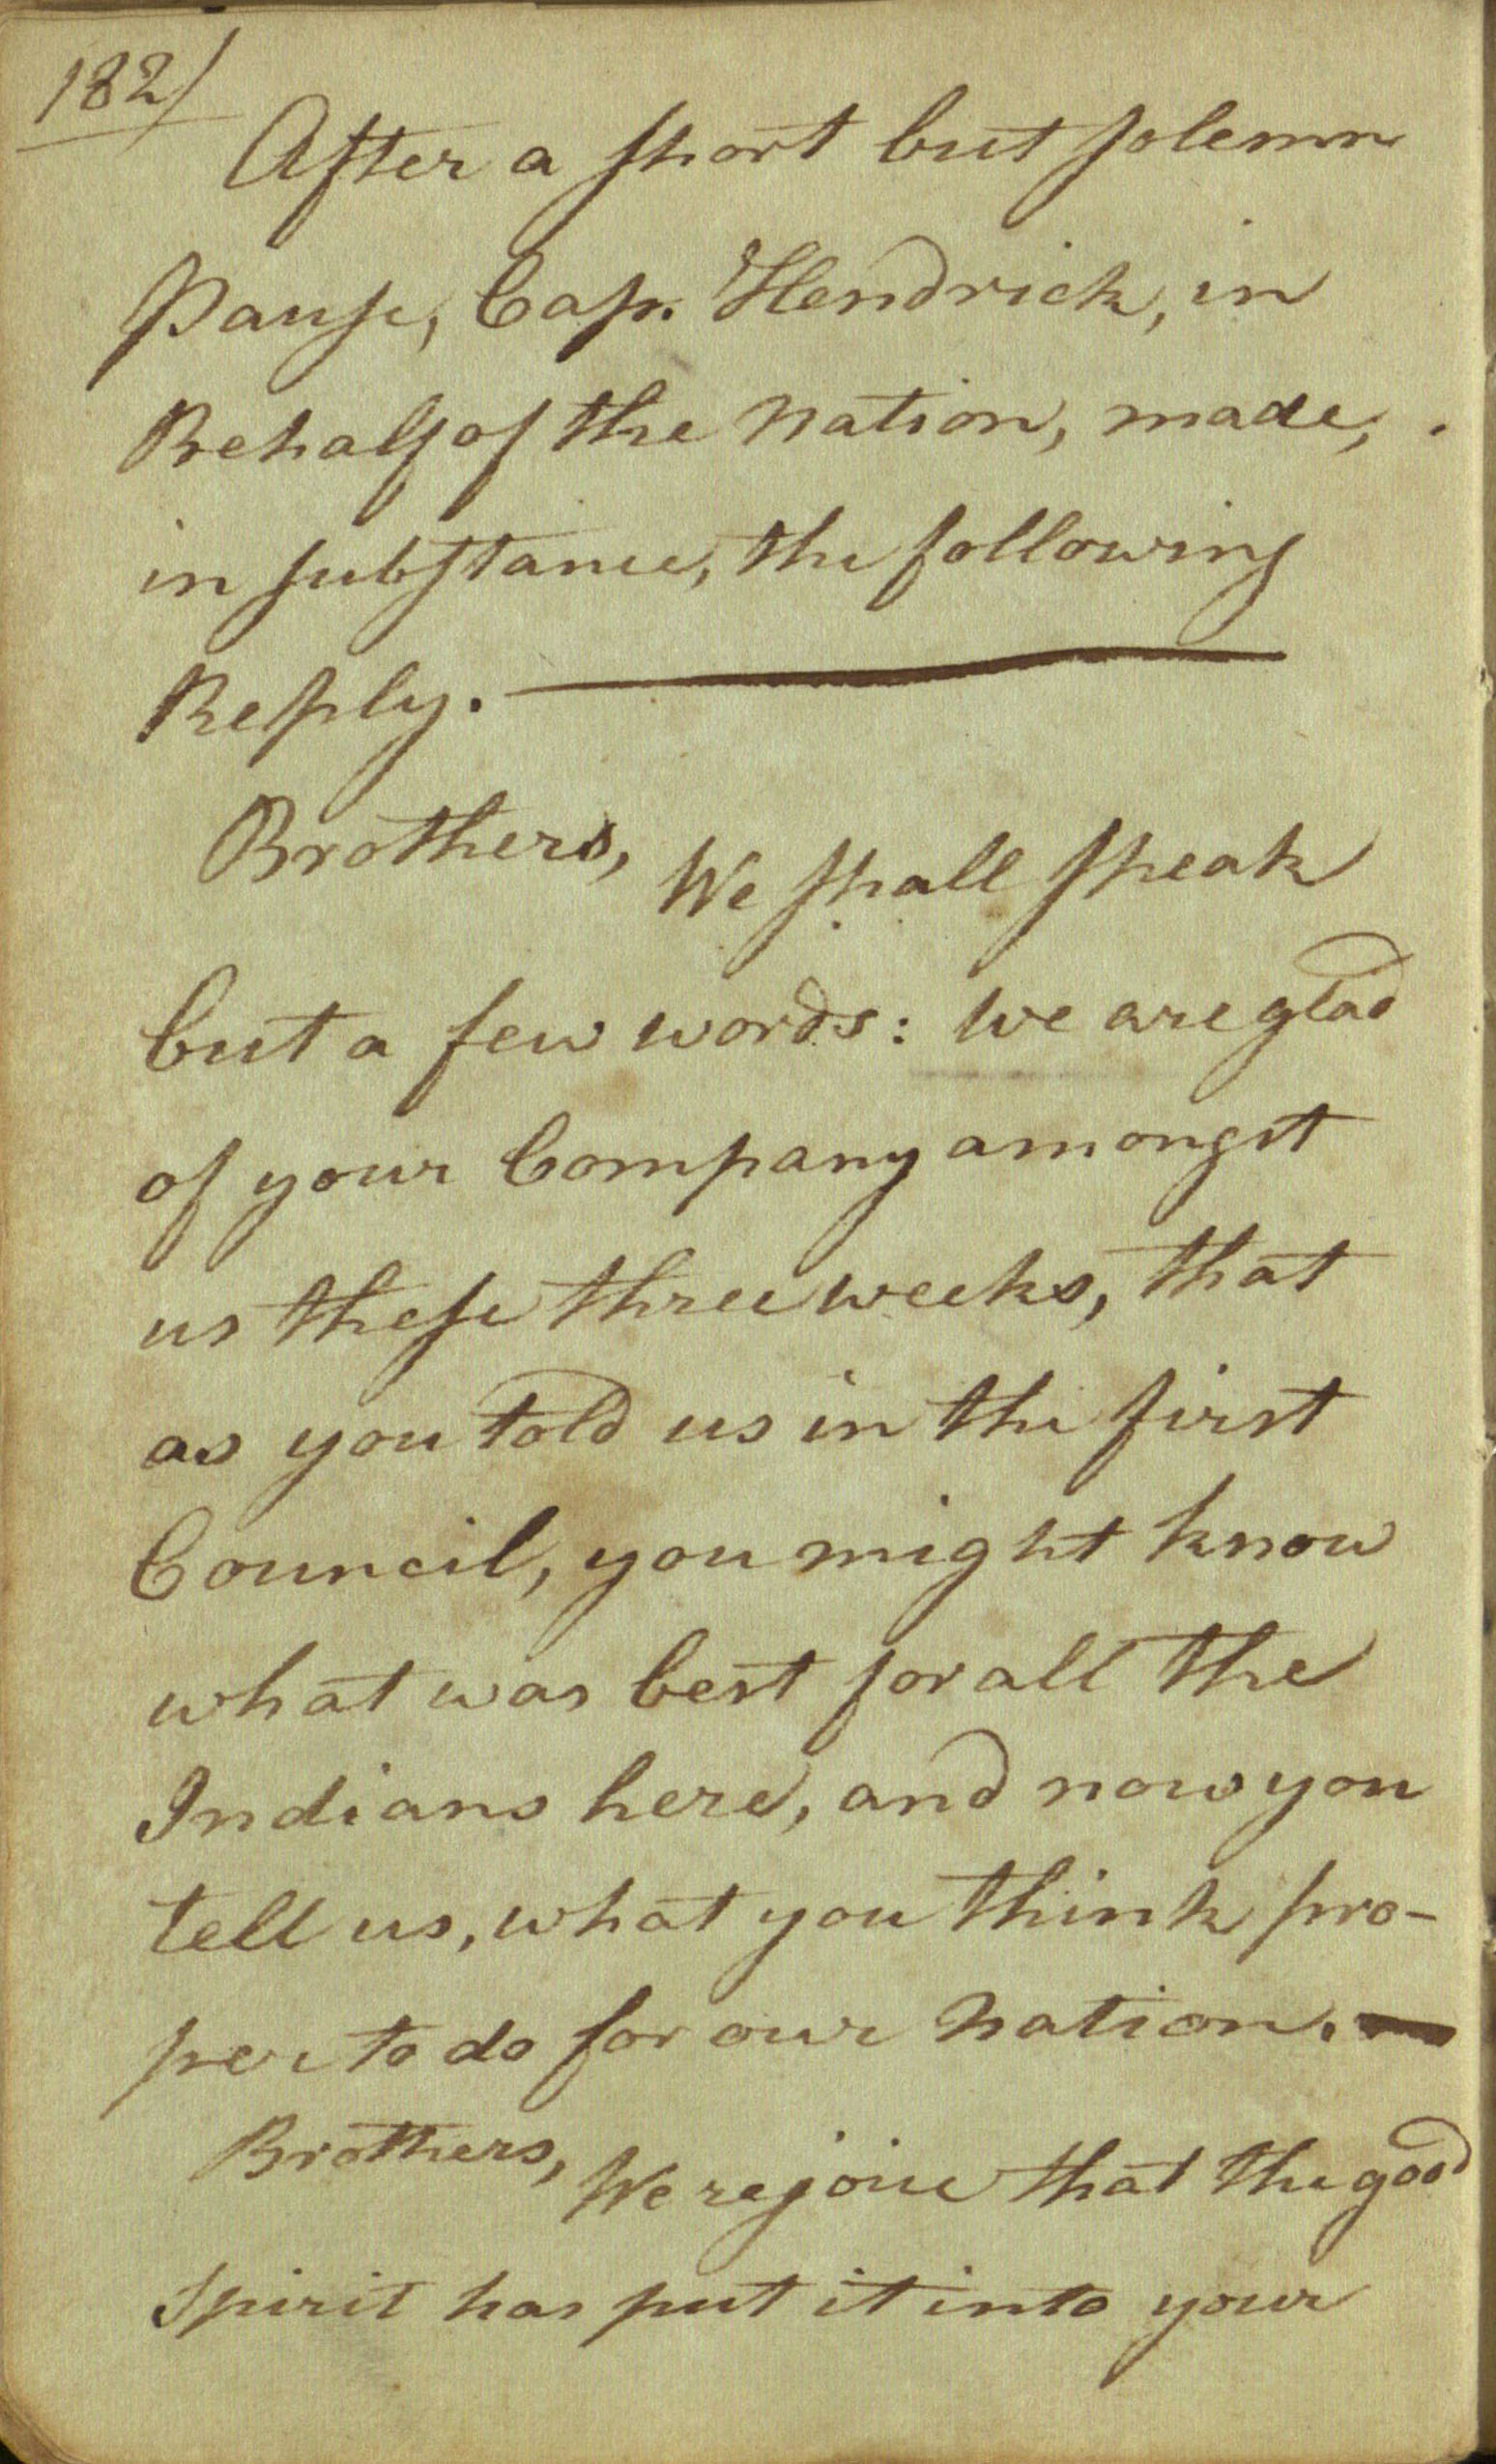 182/
After a short but solemn
Pause, Cap. Hendrick, in
Behalf of the Nation, made,
in substance, the following
Reply. —
Brothers, We shall speak
but a few words: we are glad
of your Company amongst
us these three weeks, that
as you told us in the first
Council, you might know
what was best for all the
Indians here, and now you
tell us, what you think pro-
per to do for our Nation. —
Brothers, We rejoice that the good
Spirit has put it into your